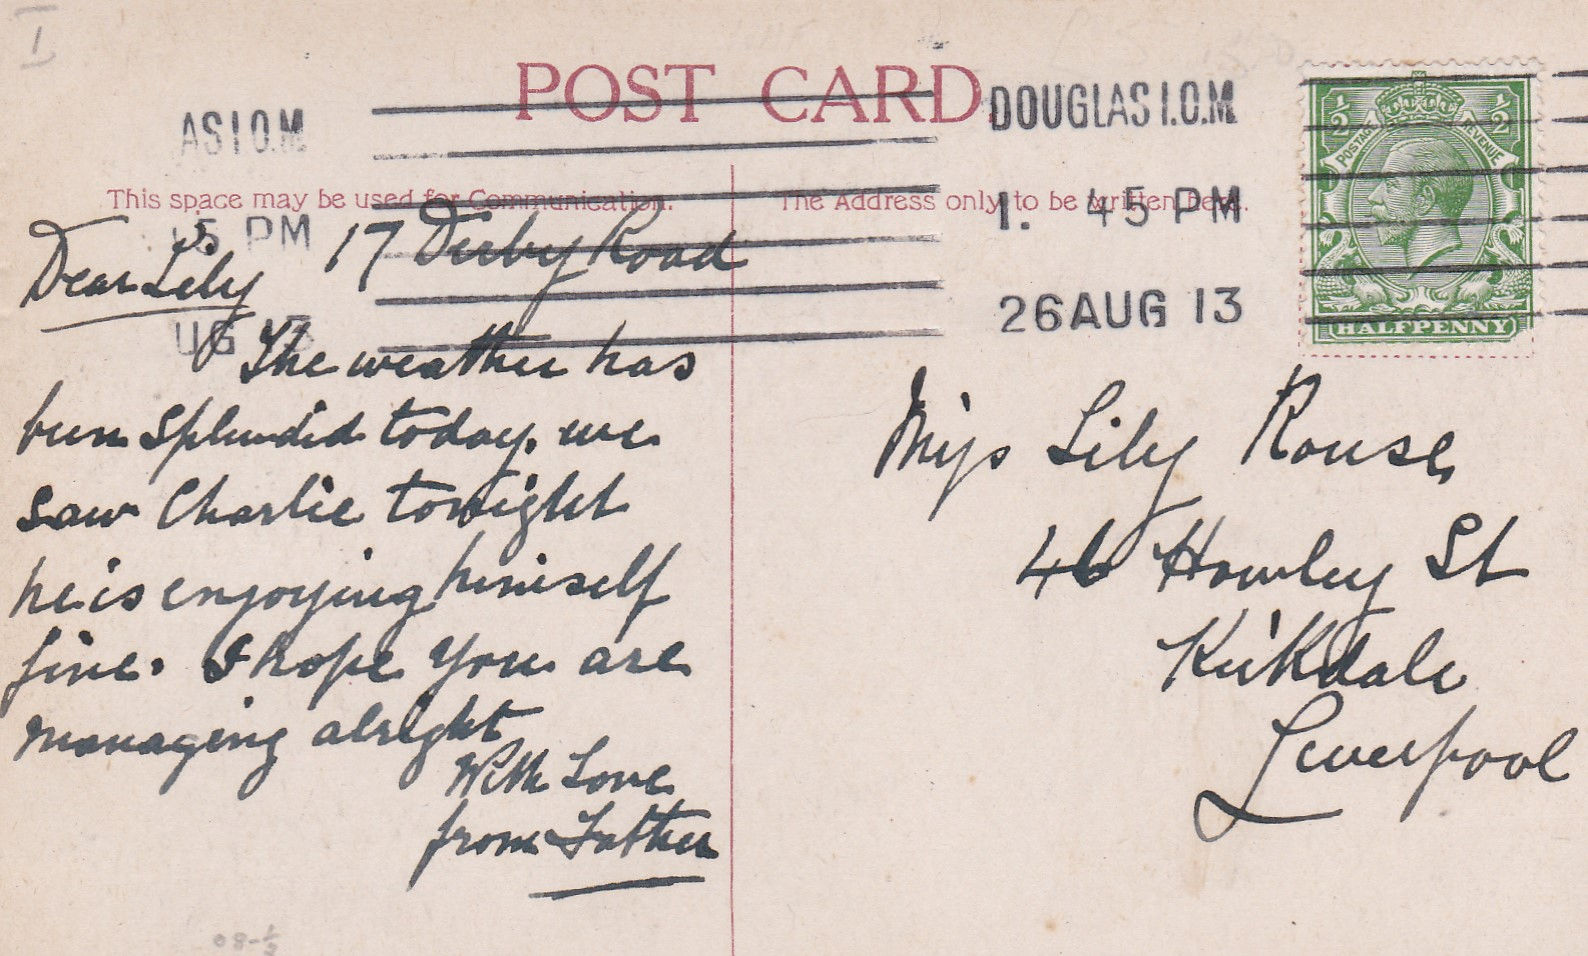 I
POST CARD
ASI.O.M
DOUGLAS I.O.M
1. 45 PM
26 AUG 13
This space may be used for Communication.
The Address only to be written here.
5 PM
UG 13
½ ½
POSTAGE REVENUE
HALFPENNY
17 Derby Road
Dear Lily
The weather has
been splendid today. we
saw Charlie tonight
he is enjoying himself
fine. I hope you are
managing alright
With Love
from Father
Miss Lily Rouse
46 Howley St
Kirkdale
Liverpool